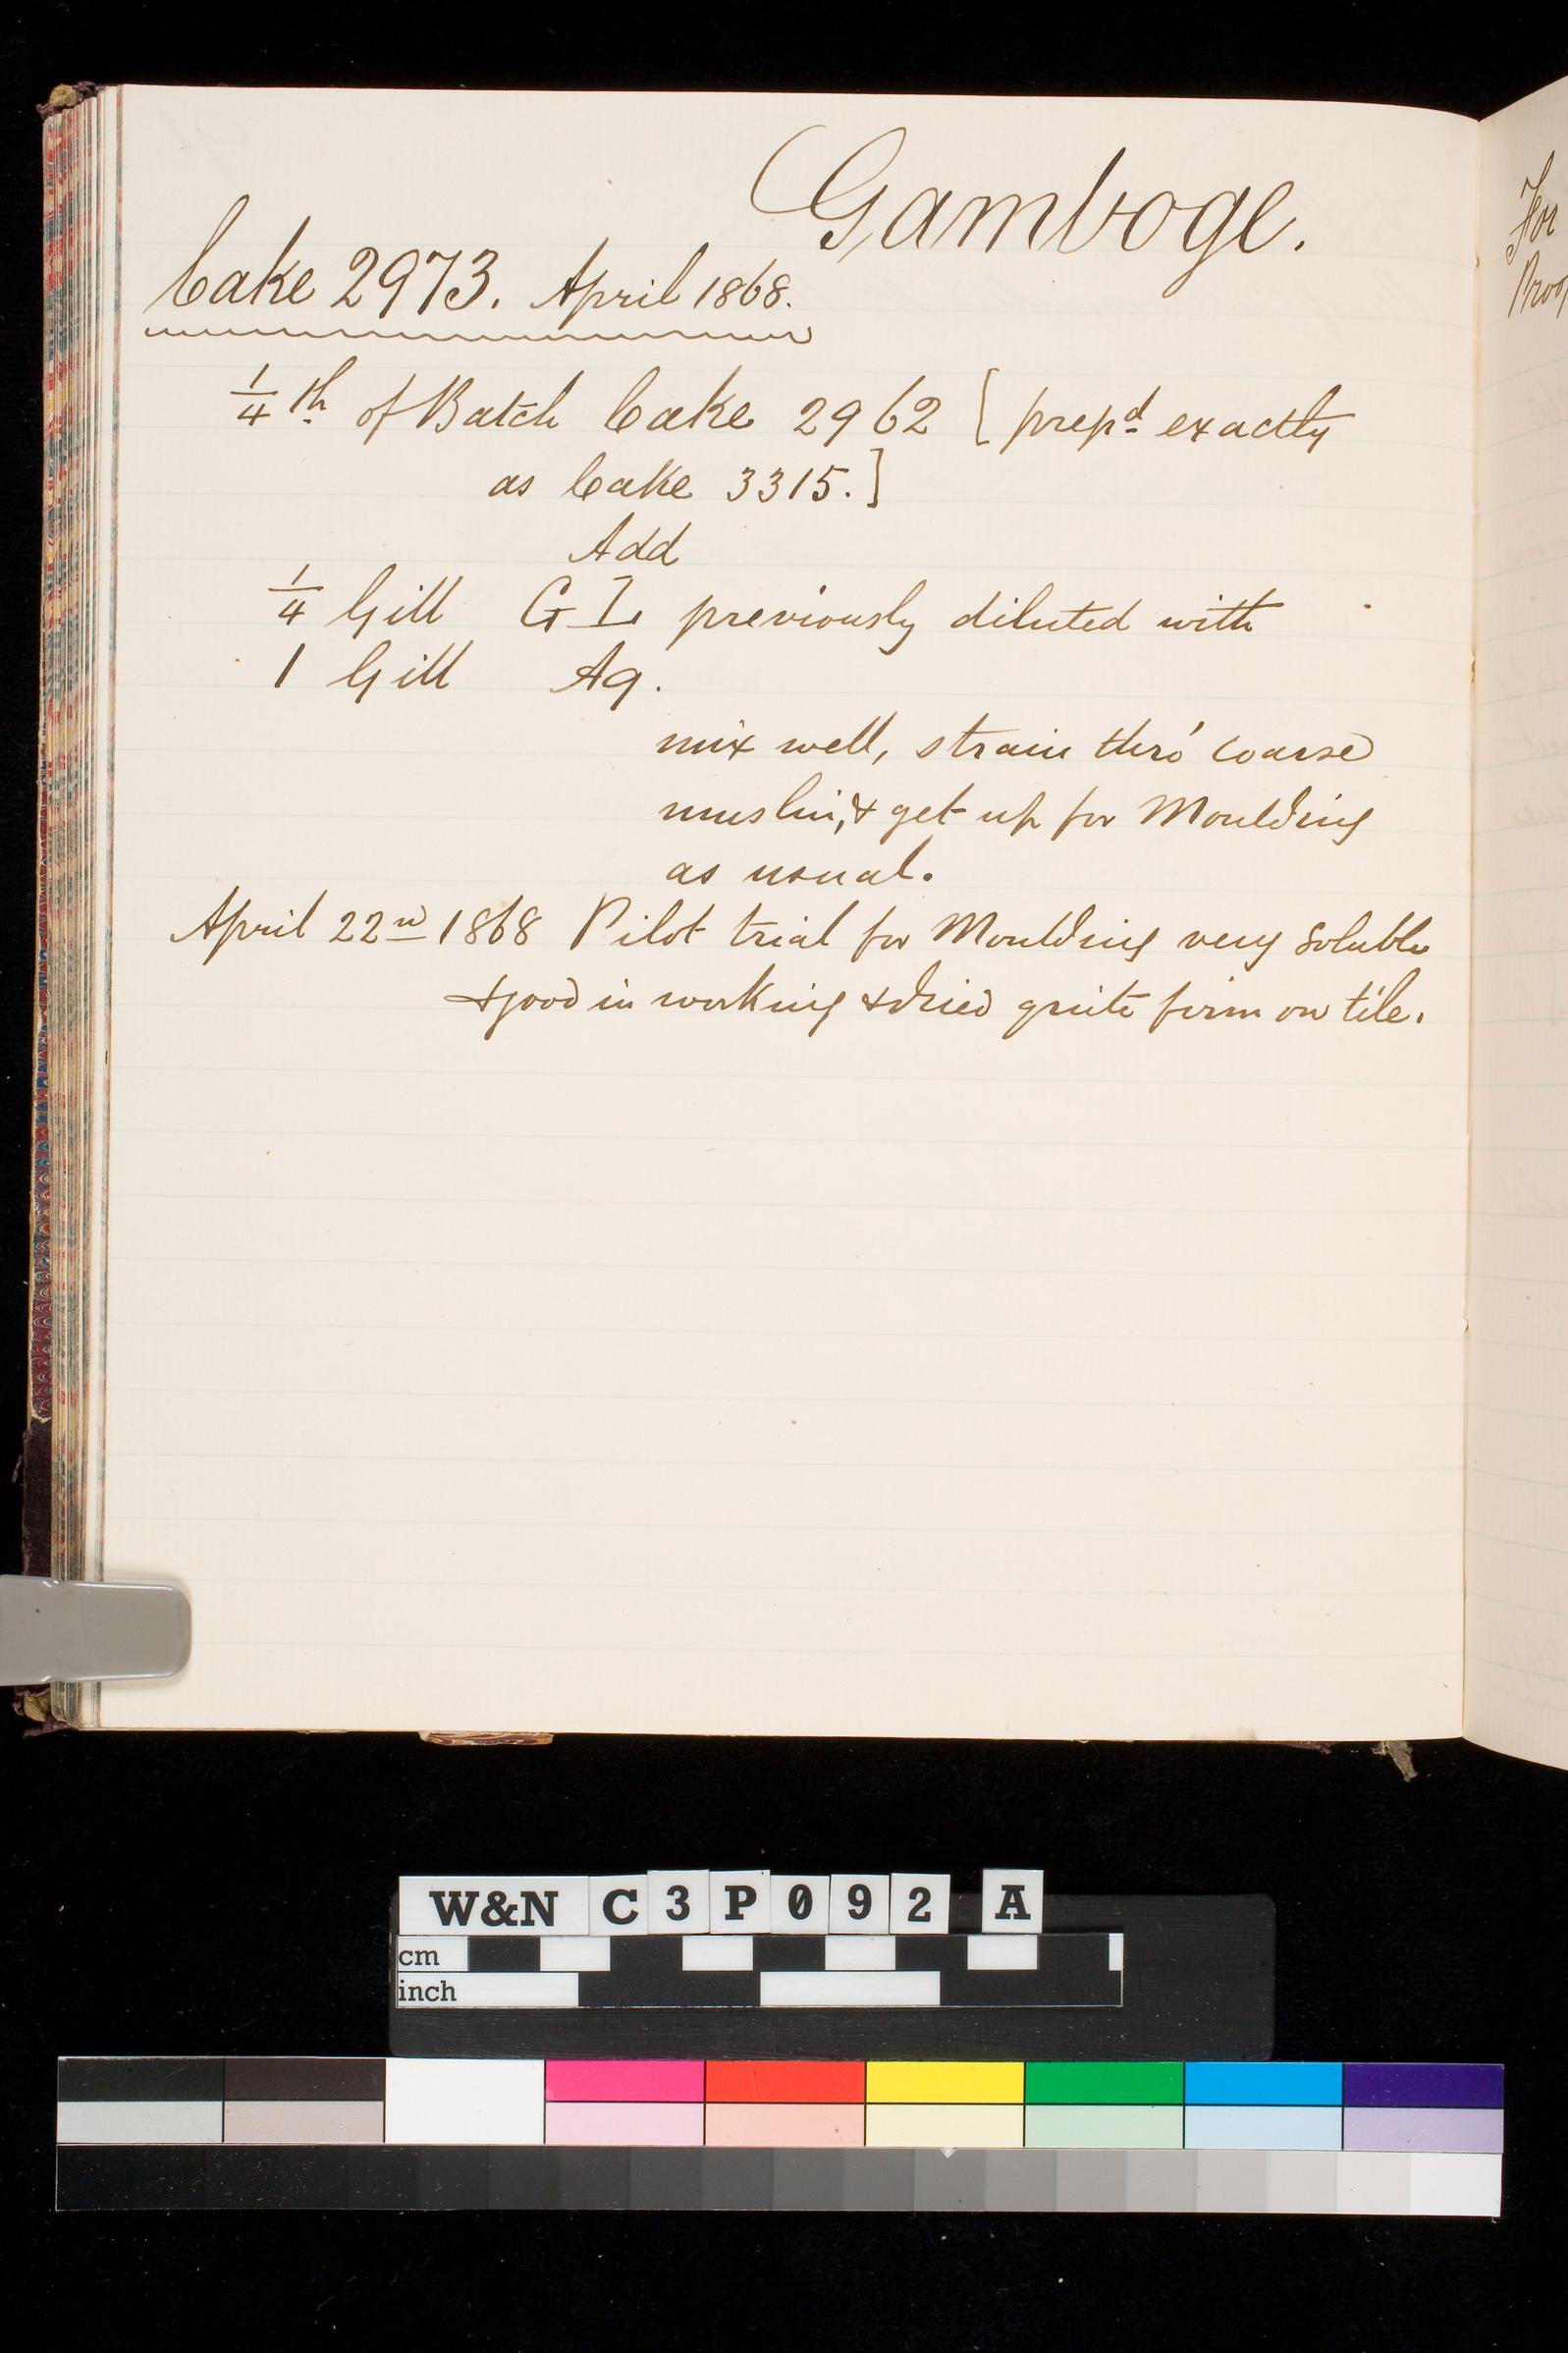 Gamboge.
Cake 2973. April 1868.
1/4 th of Batch Cake 2962 [prepd exactly
as Cake 3315.]
Add
1/4 Gill G I previously diluted with
1 Gill Aq.
mix well, strain thro' coarse
muslin, & get up for Moulding
as usual.
April 22nd 1868 Pilot trial for Moulding very soluble
& good in working & dried quite firm on tile.
For
W&N C3P092 A
cm
inch